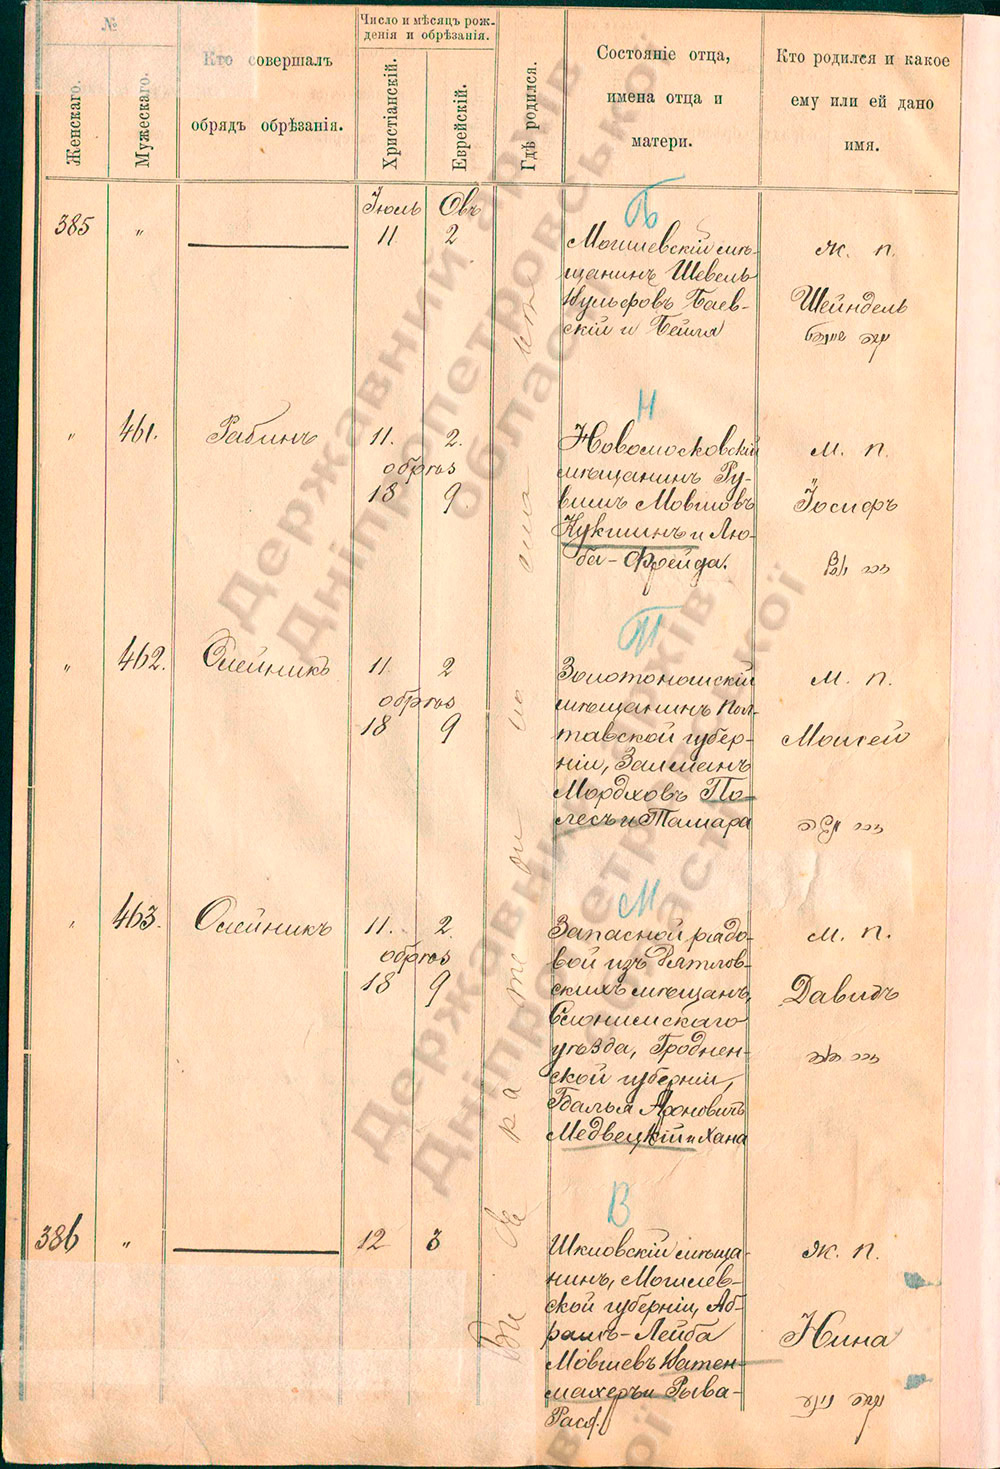 №
Женскаго.
Мужескаго.
Кто совершалъ
обрядъ обрѣзанія.
Число и мѣсяцъ рож-
денія и обрѣзанія.
Христіанскій.
Еврейскій.
Гдѣ родился.
Состояніе отца,
имена отца и
матери.
Кто родился и какое
ему или ей дано
имя.
Державний архів
Дніпропетровської
області
Іюль Овъ
385 " 11 2
Б
Могилевскій мѣ-
щанинъ Шевель
Вульфовъ Баев-
скій и Бейля
ж. п.
Шейндель
" 461. Рабинъ 11. 2.
обрѣз
18 9.
Н
Новомосковскій
мѣщанинъ Ру-
вимъ Мовшовъ
Кукшинъ и Лю-
ба-Фрейда.
м. п.
Іосифъ
" 462. Олейникъ 11. 2
обрѣз
18 9
П
Золотоношскій
мѣщанинъ Пол-
тавской губер-
ніи, Залманъ
Мордховъ По-
лесъ и Тамара
м. п.
Моисей
" 463. Олейникъ 11. 2.
обрѣз
18 9
М
Запасной рядо-
вой изъ Дятлов-
скихъ мѣщанъ,
Слонимскаго
уѣзда, Гроднен-
ской губерніи,
Ароновичъ
Медвецкій и Хана
м. п.
Давидъ
386 " 12 3
В
Шкловскій мѣща-
нинъ, Могилев-
ской губерніи, Аб-
рамъ-Лейба
Мовшевъ Ватен-
махеръ и Рыва-
ж. п.
Нина
Державний архів
Дніпропетровської
області